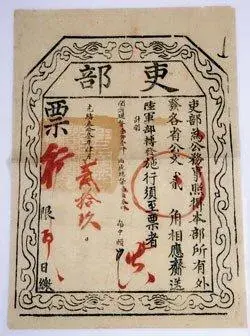 吏部
吏部為公務事照得本部所有外
發各省公文貳角相應齎送
陸軍部轉發施行須至票者
計開
光緒 年 月貳拾玖日
票行
限 日繳